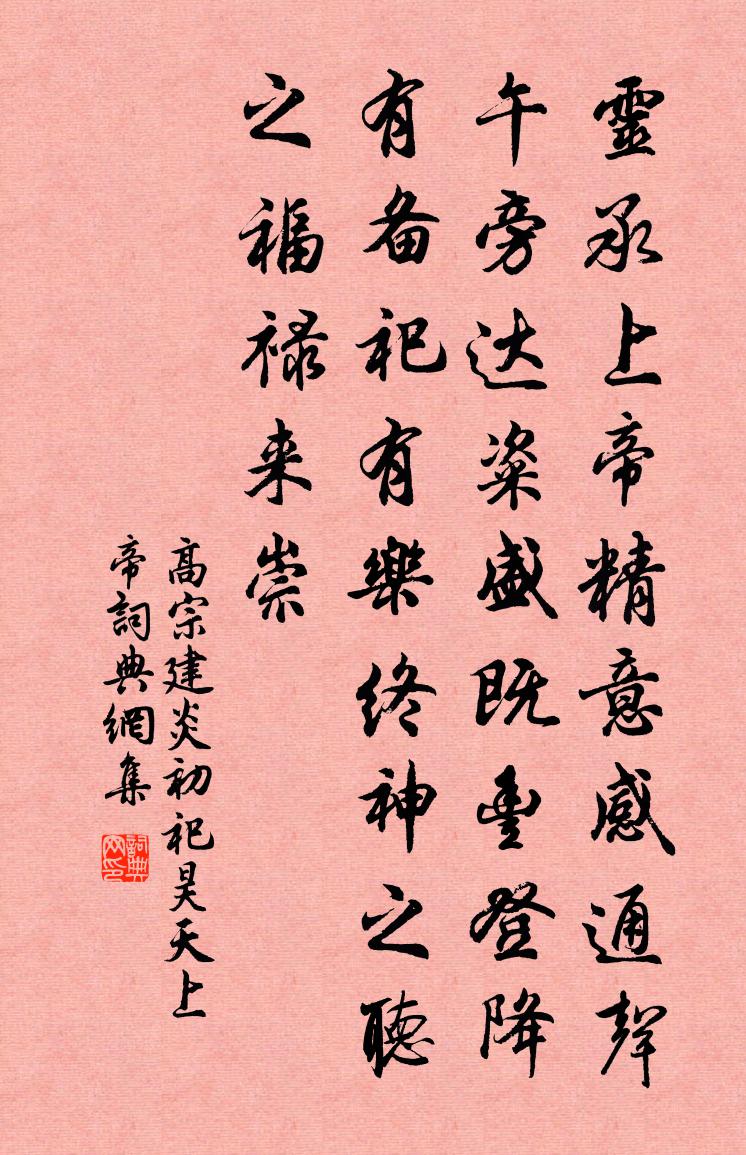 靈承上帝精意感通聲
午旁达粢盛既豐登降
有备祀有樂终神之聽
之福禄来崇
髙宗建炎初祀昊天上
帝詞典網集
詞典网印